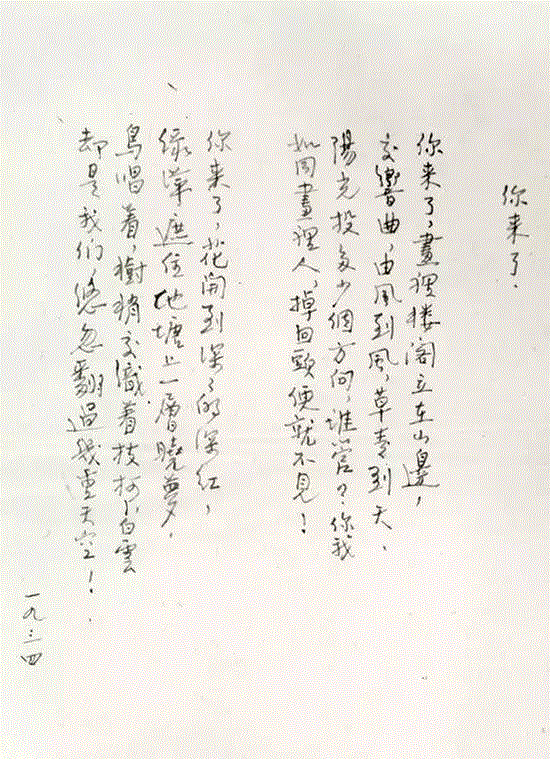 你来了.
你来了,畫裡楼阁立在山邊,
交響曲,由風到風,草青到天.
陽光投多少個方向,誰管?你我
如同畫裡人,掉回頭便就不見!
你来了,花開到深々的深紅,
绿萍遮住池塘上一層曉夢.
鳥唱着,樹梢交織着枝柯,白雲
却是我們,悠忽翻過幾重天空!
一九三四